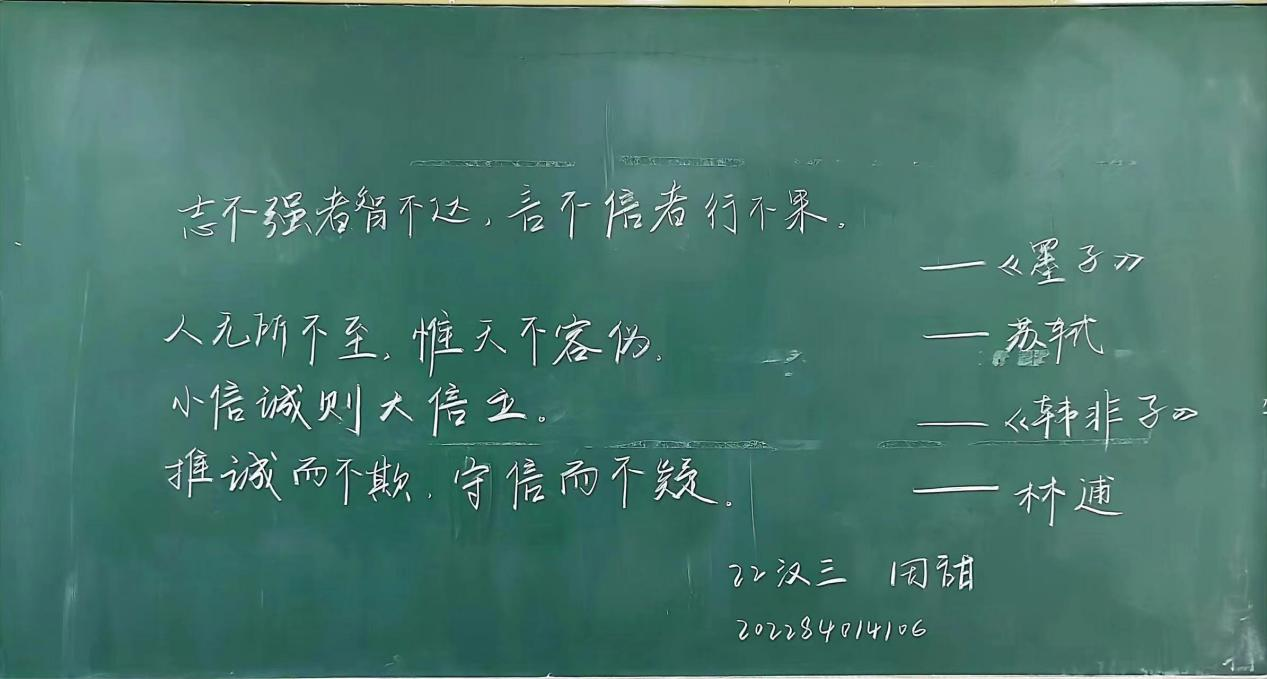 志不强者智不达，言不信者行不果。
——《墨子》
人无所不至，惟天不容伪。 ——苏轼
小信诚则大信立。 ——《韩非子》
推诚而不欺，守信而不疑。 ——林逋
22汉三 周甜
202284014106